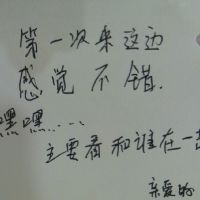 第一次来这边
感觉不错.
嘿嘿......
主要看和谁在一起
亲爱的